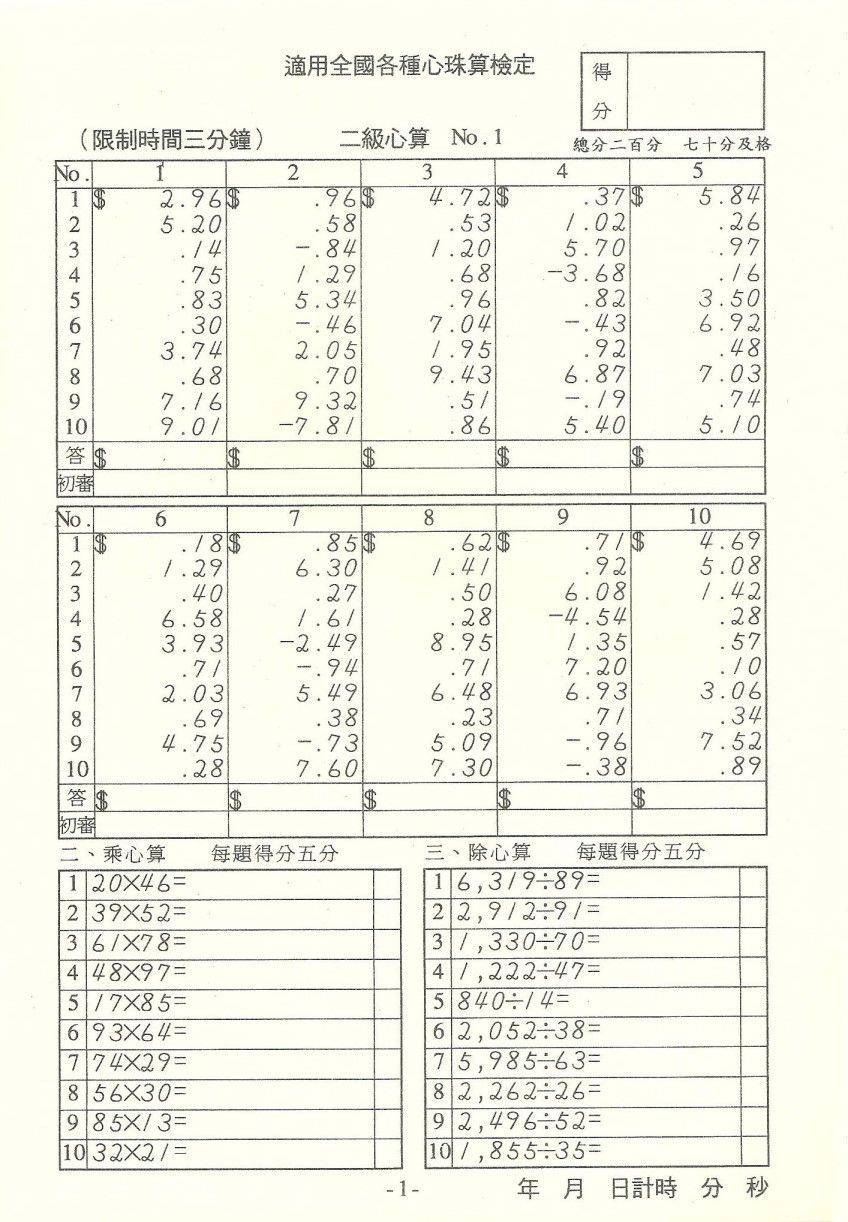 適用全國各種心珠算檢定
得分
(限制時間三分鐘) 二級心算 No.1
總分二百分 七十分及格
No. 1 2 3 4 5
1 $ 2.96 $ .96 $ 4.72 $ .37 $ 5.84
2 5.20 .58 .53 1.02 .26
3 .14 -.84 1.20 5.70 .97
4 .75 1.29 .68 -3.68 .16
5 .83 5.34 .96 .82 3.50
6 .30 -.46 7.04 -.43 6.92
7 3.74 2.05 1.95 .92 .48
8 .68 .70 9.43 6.87 7.03
9 7.16 9.32 .51 -.19 .74
10 9.01 -7.81 .86 5.40 5.10
答 $ $ $ $ $
初審
No. 6 7 8 9 10
1 $ .18 $ .85 $ .62 $ .71 $ 4.69
2 1.29 6.30 1.41 .92 5.08
3 .40 .27 .50 6.08 1.42
4 6.58 1.61 .28 -4.54 .28
5 3.93 -2.49 8.95 1.35 .57
6 .71 -.94 .71 7.20 .10
7 2.03 5.49 6.48 6.93 3.06
8 .69 .38 .23 .71 .34
9 4.75 -.73 5.09 -.96 7.52
10 .28 7.60 7.30 -.38 .89
答 $ $ $ $ $
初審
二、乘心算 每題得分五分
1 20×46=
2 39×52=
3 61×78=
4 48×97=
5 17×85=
6 93×64=
7 74×29=
8 56×30=
9 85×13=
10 32×21=
三、除心算 每題得分五分
1 6,319÷89=
2 2,912÷91=
3 1,330÷70=
4 1,222÷47=
5 840÷14=
6 2,052÷38=
7 5,985÷63=
8 2,262÷26=
9 2,496÷52=
10 1,855÷35=
-1-
年 月 日計時 分 秒